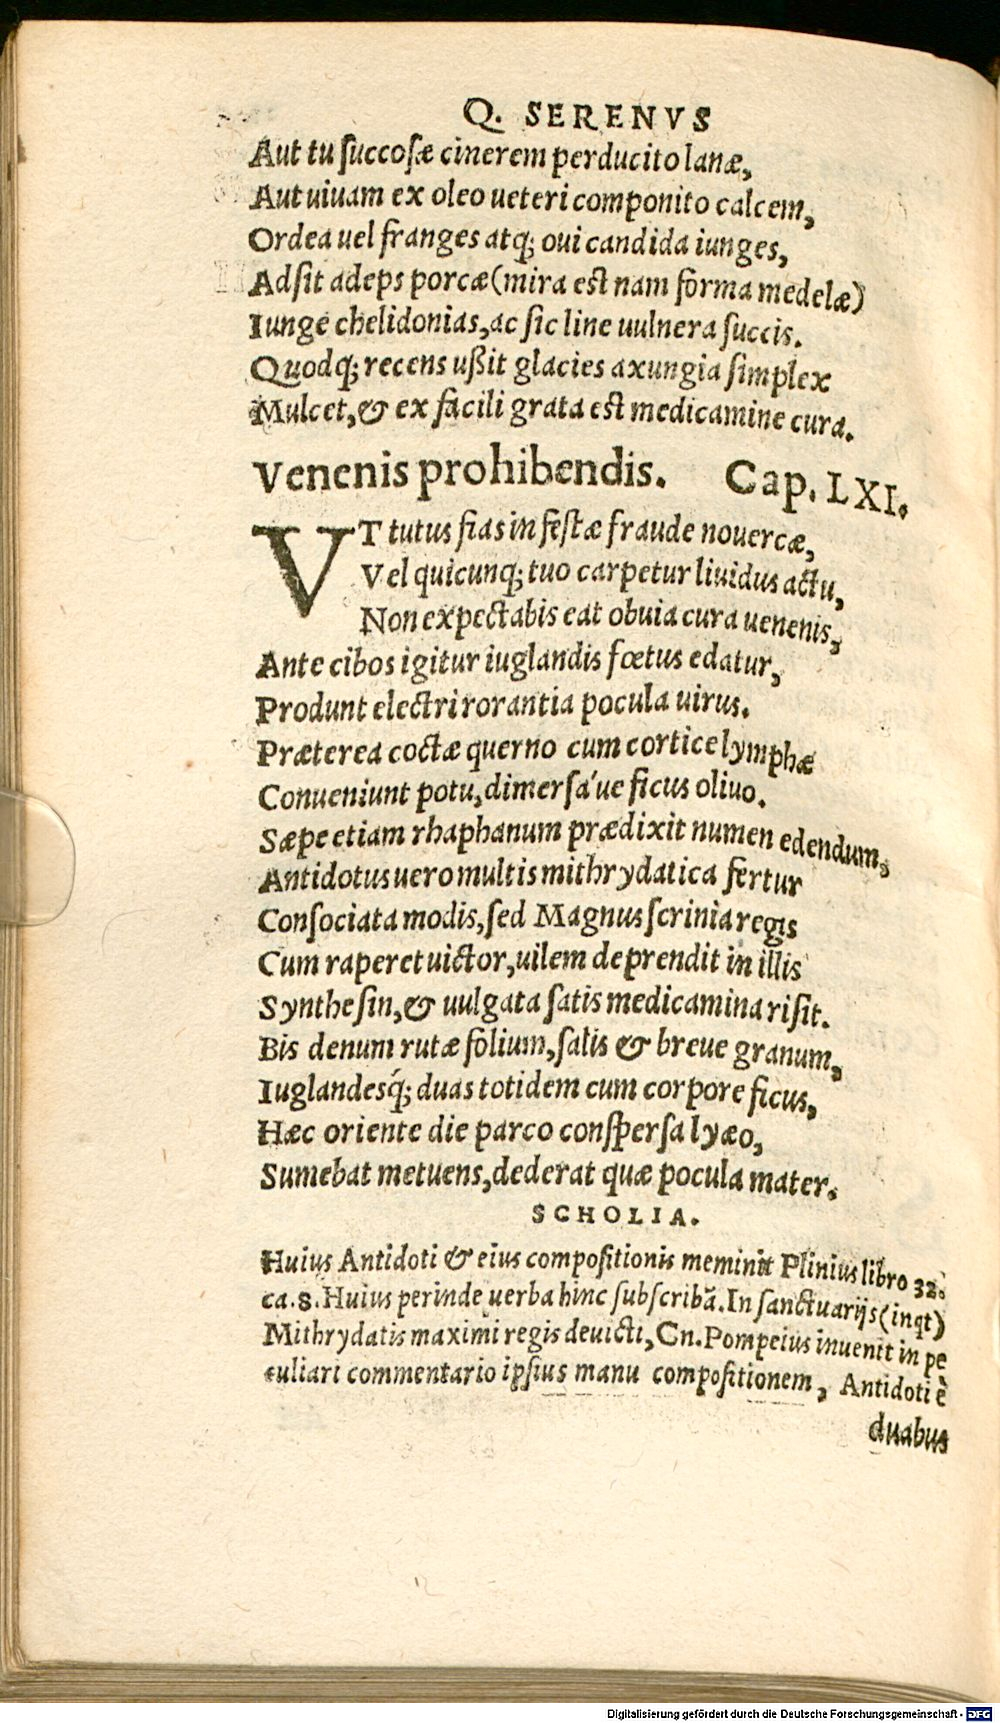 Q. SERENVS
Aut tu succosæ cinerem perducito lanæ,
Aut uiuam ex oleo ueteri componito calcem,
Ordea uel franges atq; oui candida iunges,
Adsit adeps porcæ (mira est nam forma medelæ)
Iunge chelidonias, ac sic line uulnera succis.
Quodq; recens ußit glacies axungia simplex
Mulcet, & ex facili grata est medicamine cura.
Venenis prohibendis. Cap. LXI.
VT tutus fias infestæ fraude nouercæ,
Vel quicunq; tuo carpetur liuidus actu,
Non expectabis eat obuia cura uenenis,
Ante cibos igitur iuglandis fœtus edatur,
Produnt electri rorantia pocula uirus.
Præterea coctæ querno cum cortice lymphæ
Conueniunt potu, dimersá ue ficus oliuo.
Sæpe etiam rhaphanum prædixit numen edendum,
Antidotus uero multis mithrydatica fertur
Consociata modis, sed Magnus scrinia regis
Cum raperet uictor, uilem deprendit in illis
Synthesin, & uulgata satis medicamina risit.
Bis denum rutæ folium, salis & breue granum,
Iuglandesq́; duas totidem cum corpore ficus,
Hæc oriente die parco conspersa lyæo,
Sumebat metuens, dederat quæ pocula mater.
SCHOLIA.
Huius Antidoti & eius compositionis meminit Plinius libro 32.
ca. 8. Huius perinde uerba hinc subscribã. In sanctuarijs (inqt)
Mithrydatis maximi regis deuicti, Cn. Pompeius inuenit in pe
culiari commentario ipsius manu compositionem, Antidoti è
duabus
Digitalisierung gefördert durch die Deutsche Forschungsgemeinschaft - DFG